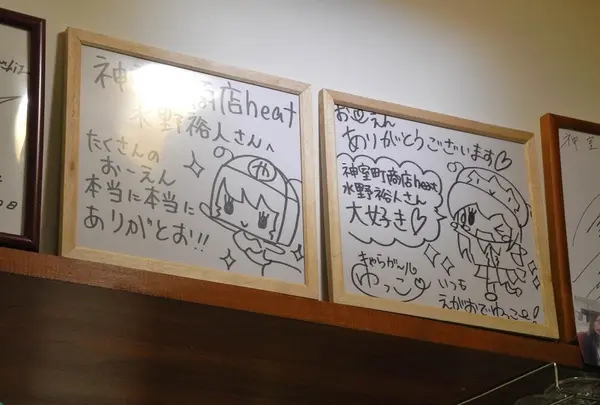 神室町商店heat
水野裕人さんへ
たくさんの
お〜えん
本当に本当に
ありがとお!!
や
お えん
ありがとうございます♡
神室町商店heat
水野裕人さん
大好き♡
きゃらが〜ル
ねっこ
いつも
えがおでねっこ
神室